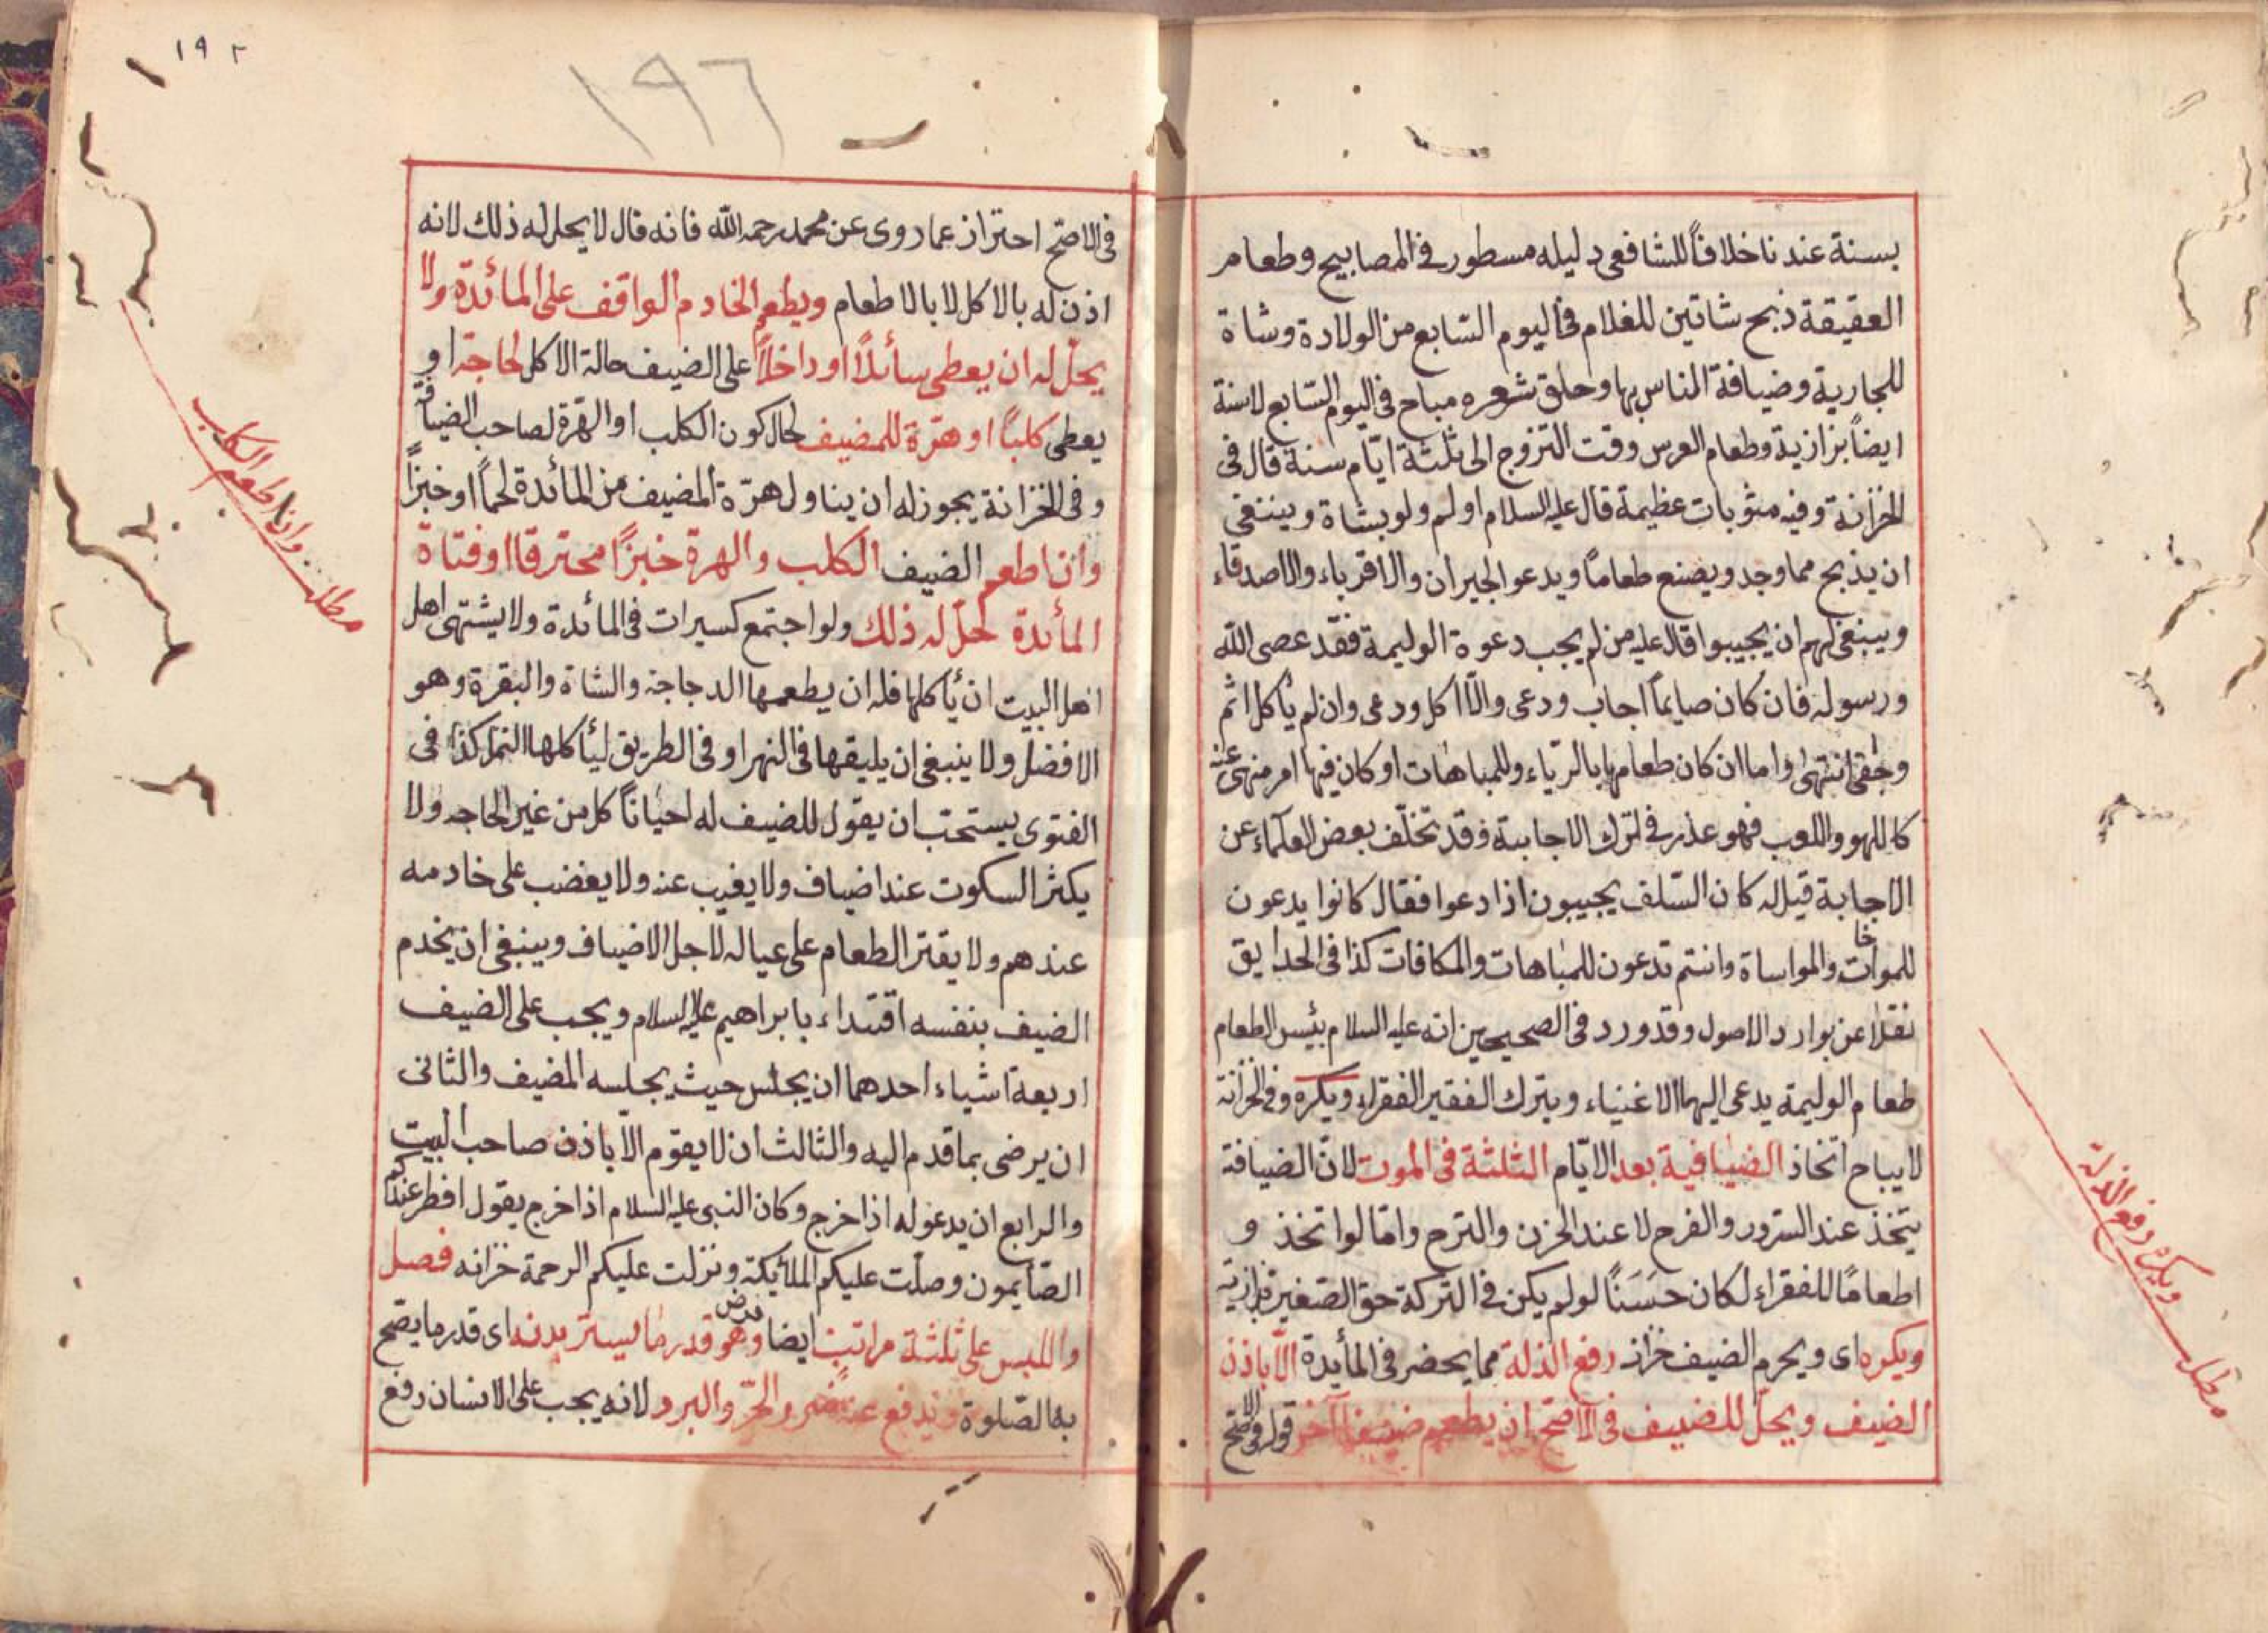 بسنة عندنا خلافاً للشافعى دليله مسطور فى المصابيح وطعام
العقيقة ذبح شاتين للغلام فى اليوم السّابع من الولادة وشاة
للجارية وضيافة الناس بها وحلق شعره مباح فى اليوم السّابع لاسنة
ايضاً بزازية وطعام العرس وقت التزوج الى ثلثة ايّام سنة قال فى
الخزانة وفيه مثوبات عظيمة قال عليه السلام اولم ولو بشاة وينبغى
ان يذبح مما وجد ويصنع طعاماً ويدعو الجيران والاقرباء والاصدقاء
وينبغى لهم ان يجيبوا قال عليه من لم يجب دعوة الوليمة فقد عصى الله
ورسوله فان كان صايماً اجاب ودعى والّا اكل ودعى وان لم يأكل اثم
وجفى انتهى واما ان كان طعامها بالرّياء وللمباهات او كان فيها امر منهى عنه
كاللهو واللعب فهو عذر فى ترك الاجابة فقد تخلّف بعض العلماء عن
الاجابة قيل له كان السّلف يجيبون اذا دعوا فقال كانوا يدعون
خا
للموات والمواساة وانتم تدعون للمباهات والمكافات كذا فى الحدايق
نقلا عن بوارد الاصول وقد ورد فى الصحيحين انه عليه السلام بئس الطعام
طعام الوليمة يدعى اليها الاغنياء ويترك الفقير الفقراء ويكره وفى الخزانة
لايباح اتخاذ الضيافية بعد الايّام الثلثة فى الموت لانّ الضيافة
يتخذ عند السّرور والفرح لا عند الحزن والترح وامّا لو اتخذ و
اطعامًا للفقراء لكان حسَنًا لو لم يكن فى التركة حق الصّغير بزازية
ويكره اى ويحرم الضيف خزانه رفع الذلة مما يحضر فى المأيدة الّا باذن
الضيف ويحلّ للضيف فى الاصّح ان يطعم ضيفا آخر قوله فى الاصّح
ويكره رفع الذلة
مطلـ
١٩٢
١٩٦
فى الاصّح احتراز عما روى عن محمد رحمه الله فانه قال لا يحل له ذلك لانه
اذن له بالاكل لا بالاطعام ويطعم الخادم الواقف على المائدة ولا
يحلّ له ان يعطى سائلاً او داخلاً على الضيف حالة الاكل لحاجة او
يعطى كلباً او هرّة للمضيف لحال كون الكلب او الهرّة لصاحب الضيافة
وفى الخزانة يجوز له ان يناول هرّة المضيف من المائدة لحماً او خبزاً
وان اطعم الضيف الكلب والهرة خبزًا محترقا او فتاة
المأئدة يحلّ له ذلك ولو اجتمع كسيرات فى المائدة ولايشتهى اهل
اهل البيت ان يأكلها فله ان يطعمها الدجاجة والشاة والبقرة وهو
الافضل ولا ينبغى ان يليقها فى النهر او فى الطريق ليأكلها النمل كذا فى
الفتوى يستحب ان يقول للضيف له احياناً كل من غير الحاجه ولا
يكثر السكوت عند اضياف ولا يغيب عنه ولا يغضب على خادمه
عندهم ولا يقتر الطعام على عياله لاجل الاضياف وينبغى ان يخدم
الضيف بنفسه اقتداء بابراهيم عليه السلام ويجب على الضيف
اربعة اشياء احدهما ان يجلس حيث يجلسه المضيف والثانى
ان يرضى بما قدم اليه والثالث ان لا يقوم الّا باذن صاحب البيت
والرابع ان يدعو له اذا خرج وكان النبى عليه السلام اذا خرج يقول افطر عندكم
الصّايمون وصلّت عليكم الملائيكة ونزلت عليكم الرحمة خزانه فصل
واللبس على ثلثة مراتب ايضا فرض وهو قدر ما يستر بدنه اى قدر ما يصّح
به الصّلوة ويدفع عنه ضر والحرّ والبرد لانه يجب على الانسان دفع
وان اطعم الكلب
مطلـ